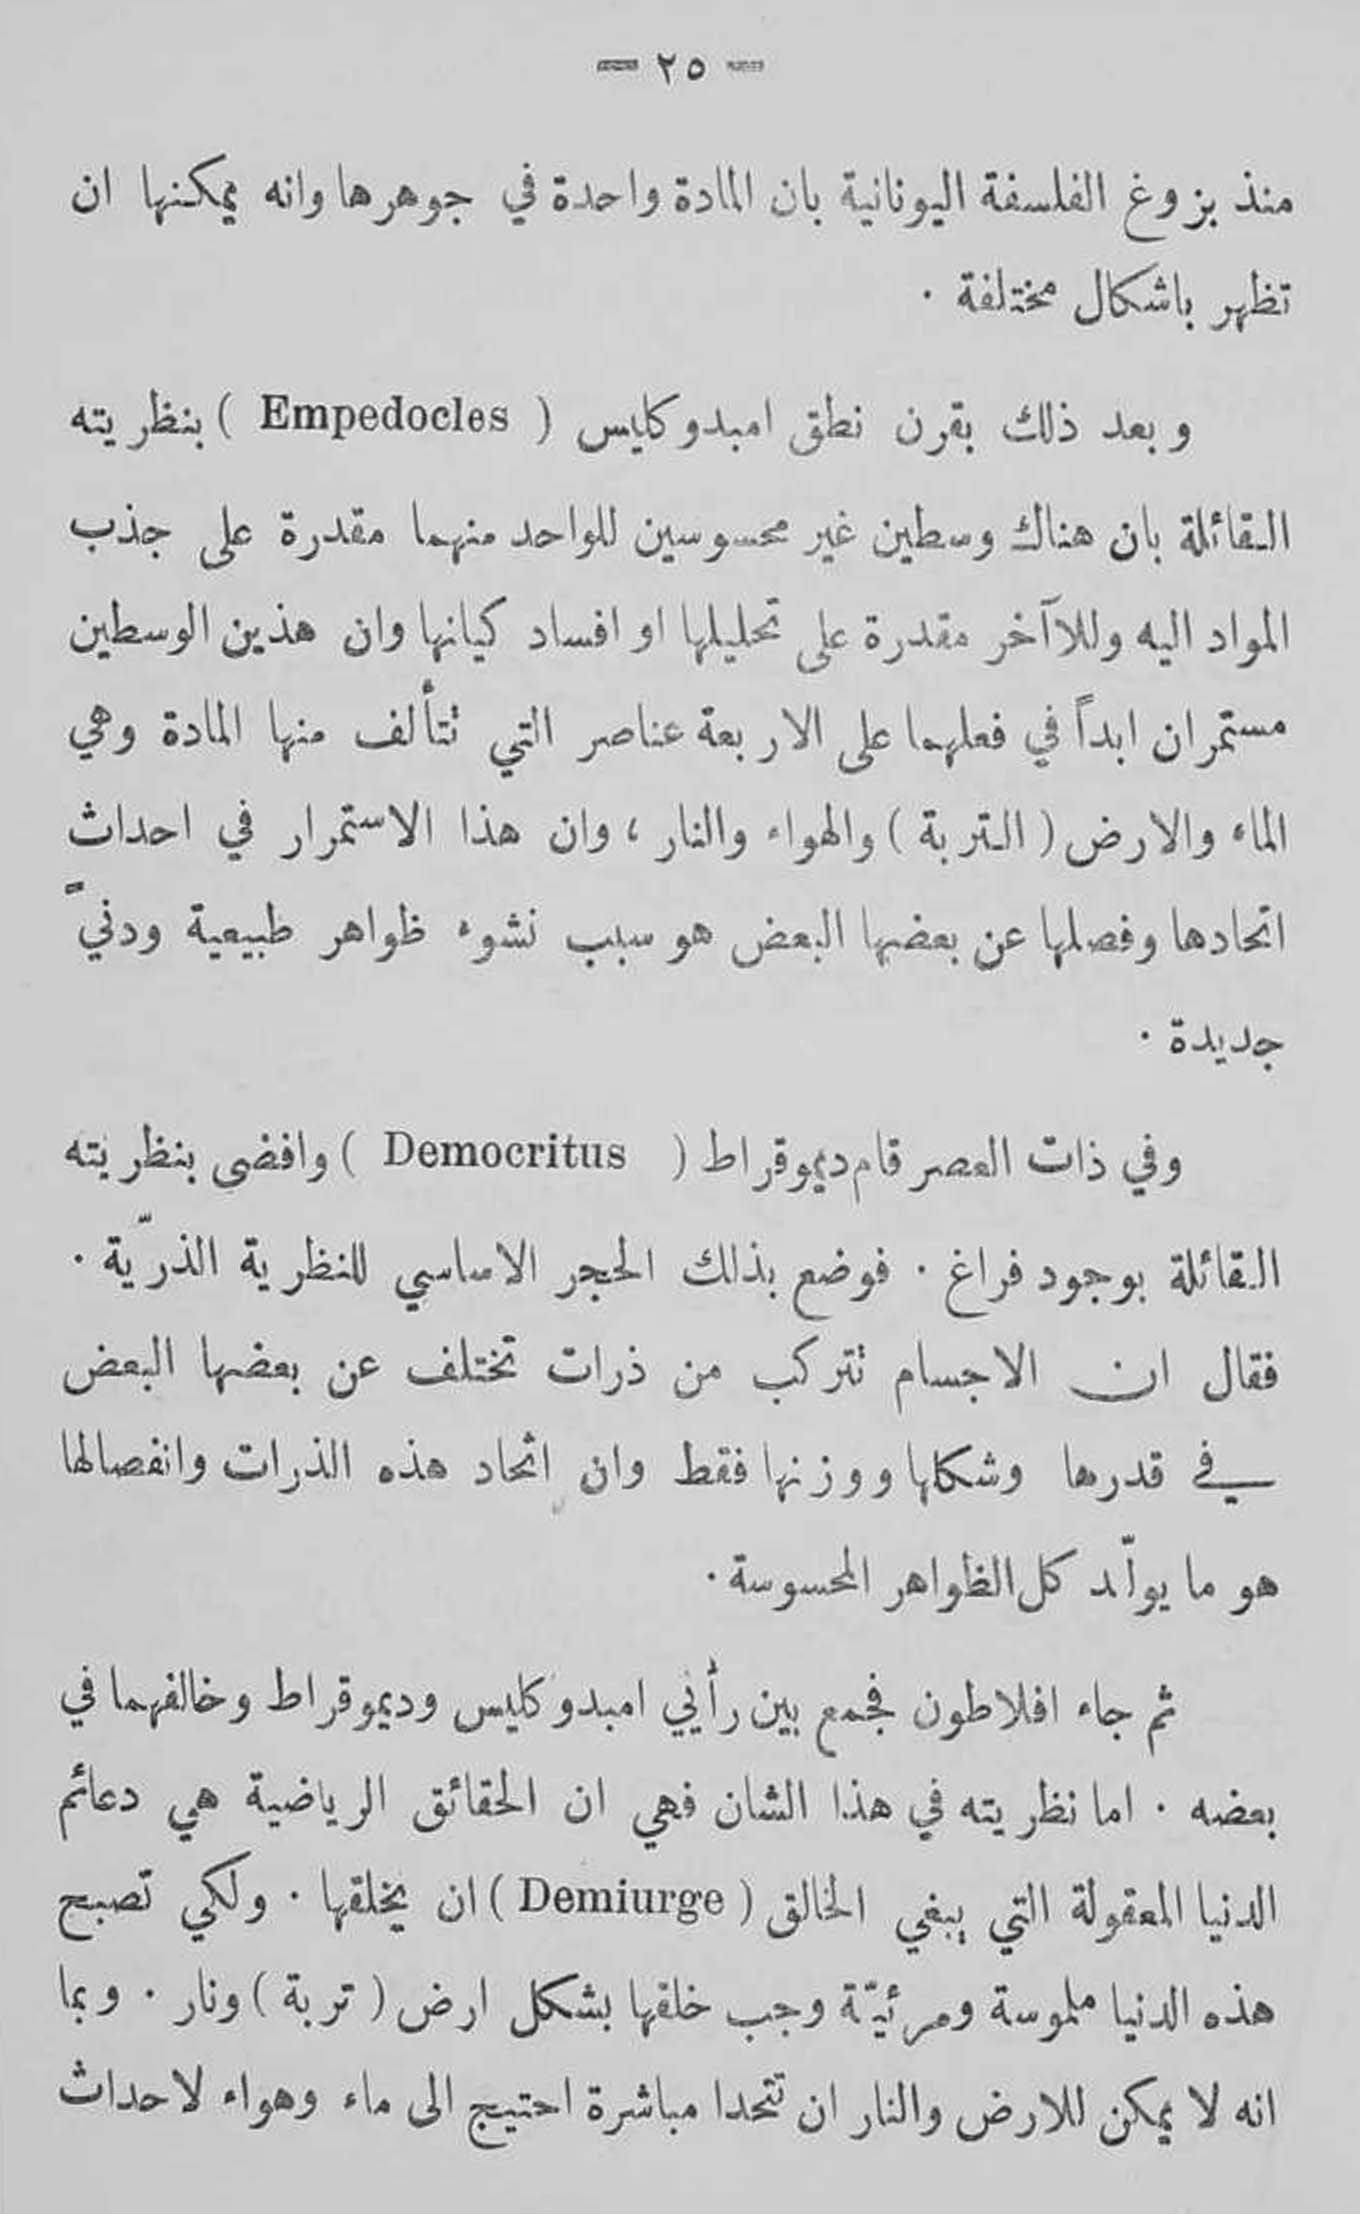 — ٢٥ —
منذ بزوغ الفلسفة اليونانية بان المادة واحدة في جوهرها وانه يمكنها ان
تظهر باشكال مختلفة ·
وبعد ذلك بقرن نطق امبدوكليس ( Empedocles ) بنظريته
القائلة بان هناك وسطين غير محسوسين للواحد منهما مقدرة على جذب
المواد اليه وللآخر مقدرة على تحليلها او افساد كيانها وان هذين الوسطين
مستمران ابداً في فعلهما على الاربعة عناصر التي تتألف منها المادة وهي
الماء والارض ( التربة ) والهواء والنار ، وان هذا الاستمرار في احداث
اتحادها وفصلها عن بعضها البعض هو سبب نشوء ظواهر طبيعية ودنيً
جديدة ·
وفي ذات العصر قام ديموقراط ( Democritus ) وافضى بنظريته
القائلة بوجود فراغ · فوضع بذلك الحجر الاساسي للنظرية الذرّية ·
فقال ان الاجسام تتركب من ذرات تختلف عن بعضها البعض
في قدرها وشكلها ووزنها فقط وان اتحاد هذه الذرات وانفصالها
هو ما يولّد كل الظواهر المحسوسة ·
ثم جاء افلاطون فجمع بين رأيي امبدوكليس وديموقراط وخالفهما في
بعضه · اما نظريته في هذا الشان فهي ان الحقائق الرياضية هي دعائم
الدنيا المعقولة التي يبغي الخالق ( Demiurge ) ان يخلقها · ولكي تصبح
هذه الدنيا ملموسة ومرئيّة وجب خلقها بشكل ارض ( تربة ) ونار · وبما
انه لا يمكن للارض والنار ان تتحدا مباشرة احتيج الى ماء وهواء لاحداث